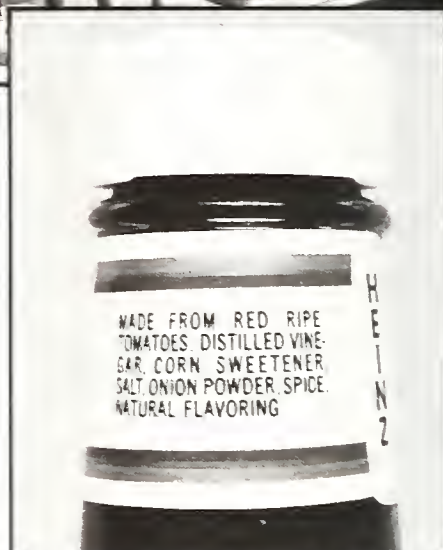 MADE FROM RED RIPE
TOMATOES, DISTILLED VINE-
GAR, CORN SWEETENER,
SALT, ONION POWDER, SPICE,
NATURAL FLAVORING
HEINZ